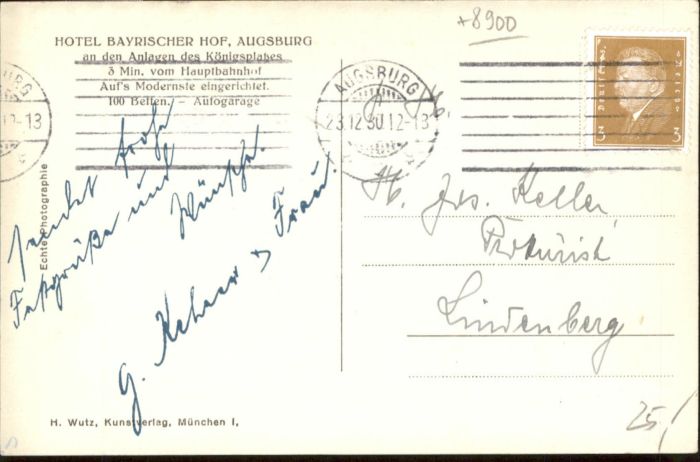 +8900
HOTEL BAYRISCHER HOF, AUGSBURG
an den Anlagen des Königsplatzes
3 Min. vom Hauptbahnhof
Auf's Modernste eingerichtet.
100 Betten. Autogarage
AUGSBURG
23.12.30.12-13
3 3
Echte Photographie
sendet frohe
Festgrüße und
Wünsche.
G. & Frau.
H. Jos. Keller
Prokurist
Lindenberg
25,
H. Wutz, Kunstverlag, München I,